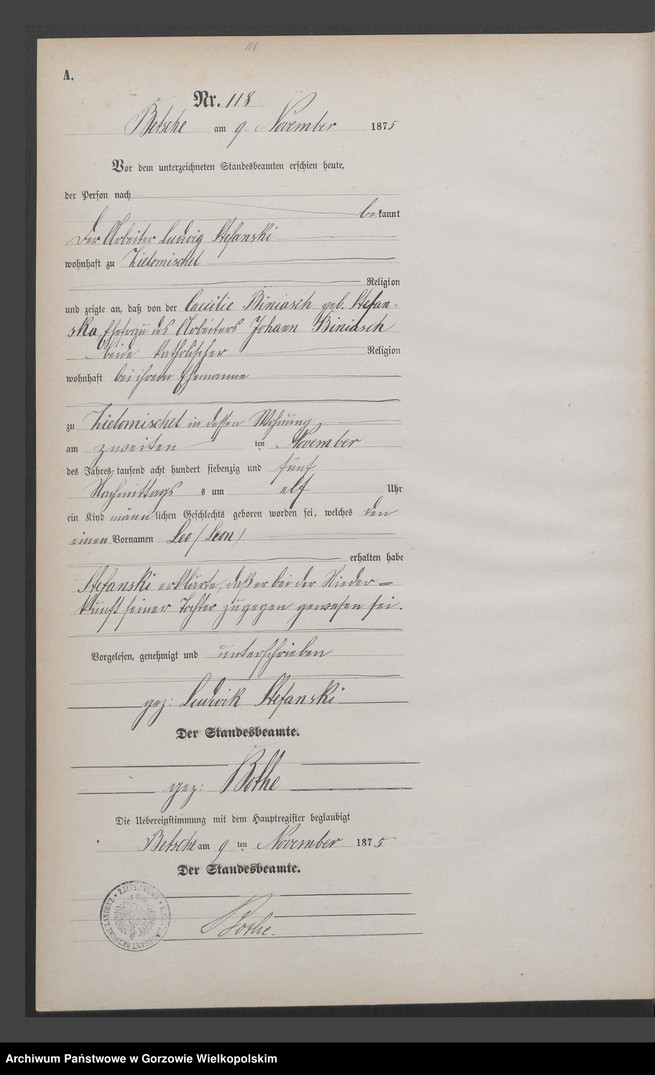 118
A.
Nr. 118
Betsche am 9. November 1875
Vor dem unterzeichneten Standesbeamten erschien heute,
der Person nach
bekannt
der Arbeiter Ludwig Stefanski
wohnhaft zu Zielomischel
Religion
und zeigte an, daß von der Caecilie Biniasch geb. Stefan-
ska Ehefrau des Arbeiters Johann Biniasch
beide katholischer Religion
wohnhaft bei ihrem Ehemanne
zu Zielomischel in dessen Wohnung
am zweiten ten November
des Jahres tausend acht hundert siebenzig und fünf
Nachmittags s um elf Uhr
ein Kind männlichen Geschlechts geboren worden sei, welches den
einen Vornamen Leo (Leon)
erhalten habe
Stefanski erklärte, daß er bei der Nieder-
kunft seiner Tochter zugegen gewesen sei.
Vorgelesen, genehmigt und unterschrieben
gez: Ludwik Stefanski
Der Standesbeamte.
gez: Bothe
Die Uebereinstimmung mit dem Hauptregister beglaubigt
Betsche am 9 ten November 1875
Der Standesbeamte.
Bothe.
Archiwum Państwowe w Gorzowie Wielkopolskim